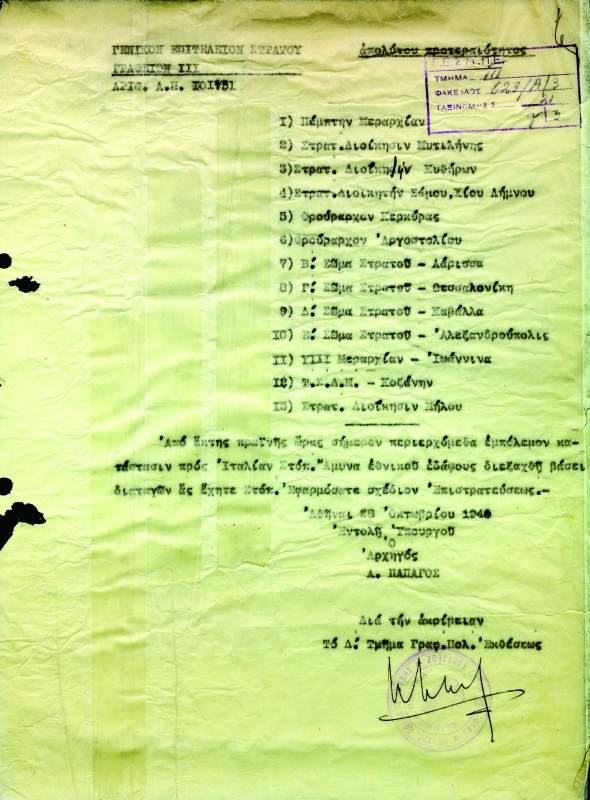 ΓΕΝΙΚΟΝ ΕΠΙΤΕΛΕΙΟΝ ΣΤΡΑΤΟΥ
ἀπολύτου προτεραιότητος
ΓΡΑΦΕΙΟΝ ΙΙΙ
ΑΡΙΘ.
Γ.Ε.Σ./Π.Π.Ε.
ΤΜΗΜΑ III
ΦΑΚΕΛΛΟΣ 623/Α/3
ΤΑΞΙΝΟΜΗΣΙΣ
1) Πέμπτην Μεραρχίαν
2) Στρατ.Διοίκησιν Μυτιλήνης
3)Στρατ. Διοίκησιν Κυθήρων
4)Στρατ.Διοικητήν Σάμου,Χίου Λήμνου
5) Φρούραρχον Κερκύρας
6)Φρούραρχον Ἀργοστολίου
7) Β! Σῶμα Στρατοῦ - Λάρισσα
8) Γ! Σῶμα Στρατοῦ - Θεσσαλονίκη
9) Δ! Σῶμα Στρατοῦ - Καβάλλα
10) Ε! Σῶμα Στρατοῦ - Ἀλεξανδρούπολις
11) VIII Μεραρχίαν - Ἰωάννινα
12) Τ.Σ.Δ.Μ. - Κοζάνην
13) Στρατ. Διοίκησιν Μήλου
Ἀπό ἕκτης πρωϊνῆς ὥρας σήμερον περιερχόμεθα ἐμπόλεμον κα-
τάστασιν πρός Ἰταλίαν Στόπ. Ἄμυνα ἐθνικοῦ ἐδάφους διεξαχθῆ βάσει
διαταγῶν ἅς ἔχητε Στόπ. Ἐφαρμόσατε σχέδιον Ἐπιστρατεύσεως.-
Ἀθῆναι 28 Ὀκτωβρίου 1940
Ἐντολῇ Ὑπουργοῦ
Ὁ
Ἀρχηγός
Α. ΠΑΠΑΓΟΣ
Διά τήν ἀκρίβειαν
Τό Δ! Τμῆμα Γραφ.Πολ. Ἐκθέσεως